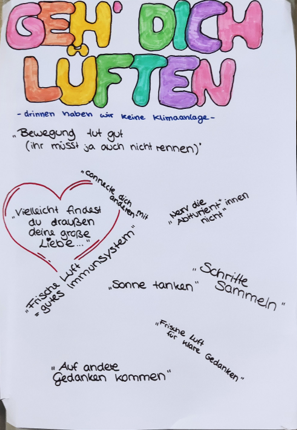 GEH' DICH
LÜFTEN
- drinnen haben wir keine Klimaanlage -
„Bewegung tut gut
(ihr müsst ja auch nicht rennen)"
„connecte dich
mit
anderen"
„Nerv die
Abiturient*innen
nicht"
„Vielleicht findest
du draußen
deine große
Liebe..."
„Frische Luft
= gutes Immunsystem"
„Sonne tanken"
„Schritte
Sammeln"
„Frische Luft
für klare Gedanken"
„Auf andere
Gedanken kommen"